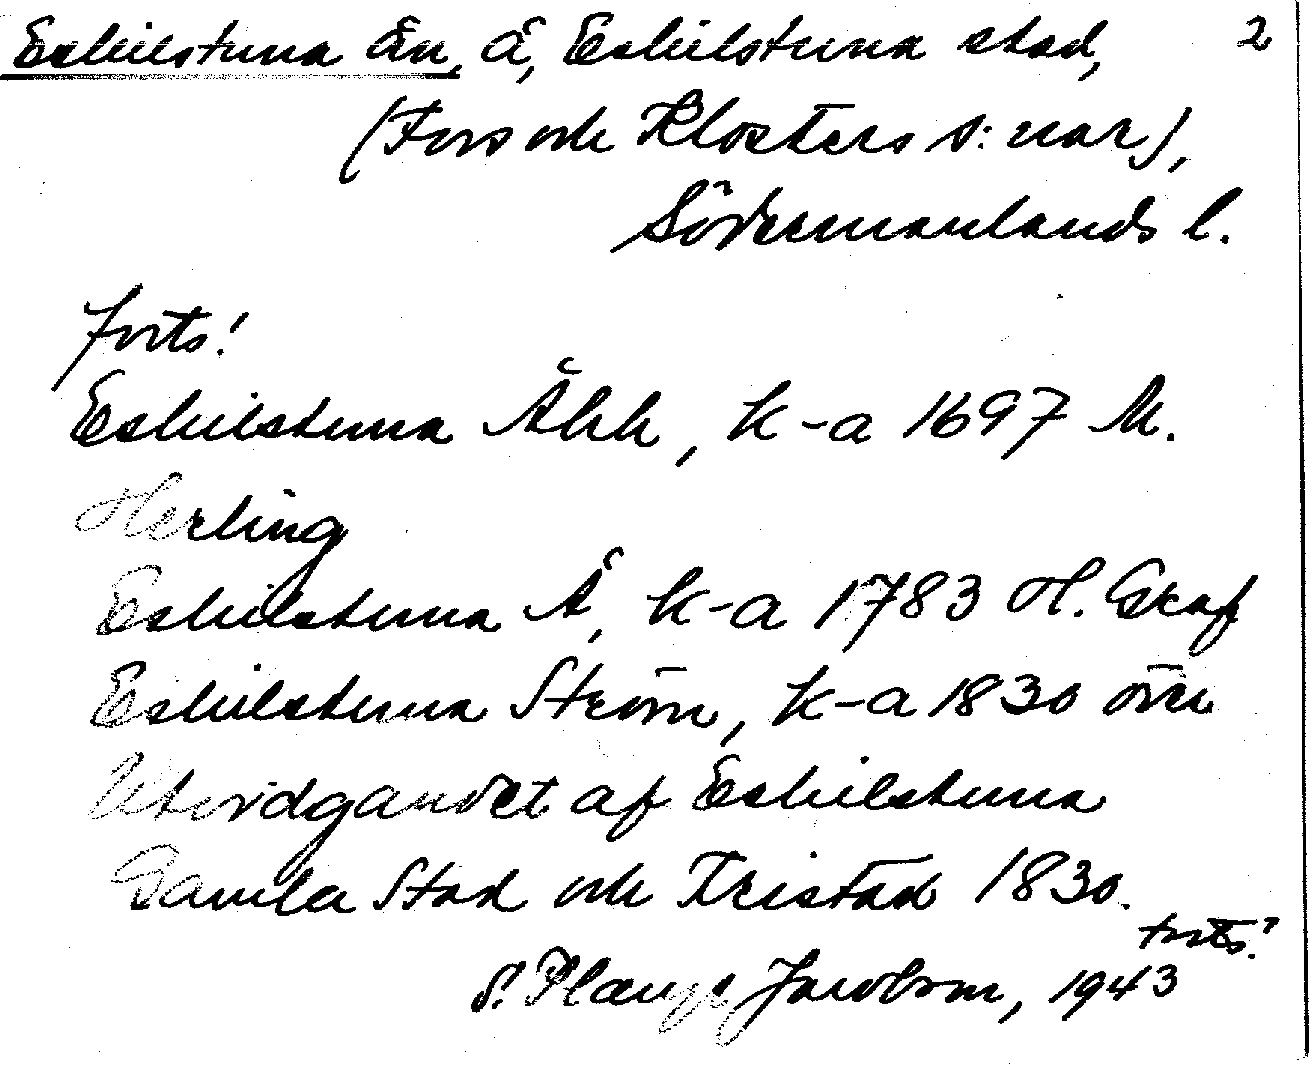 Eskilstuna ån, å, Eskilstuna stad, 2
(Fors och Klosters s:nar),
Södermanlands l.
forts!
Eskilstuna Åhh, k-a 1697 M.
Herling
Eskilstuna Å, k-a 1783 H. Graf
Eskilstuna Ström, k-a 1830 över
Utvidgandet af Eskilstuna
Gamla Stad och Fristad 1830.
forts!
S. Plange Jacobson, 1943